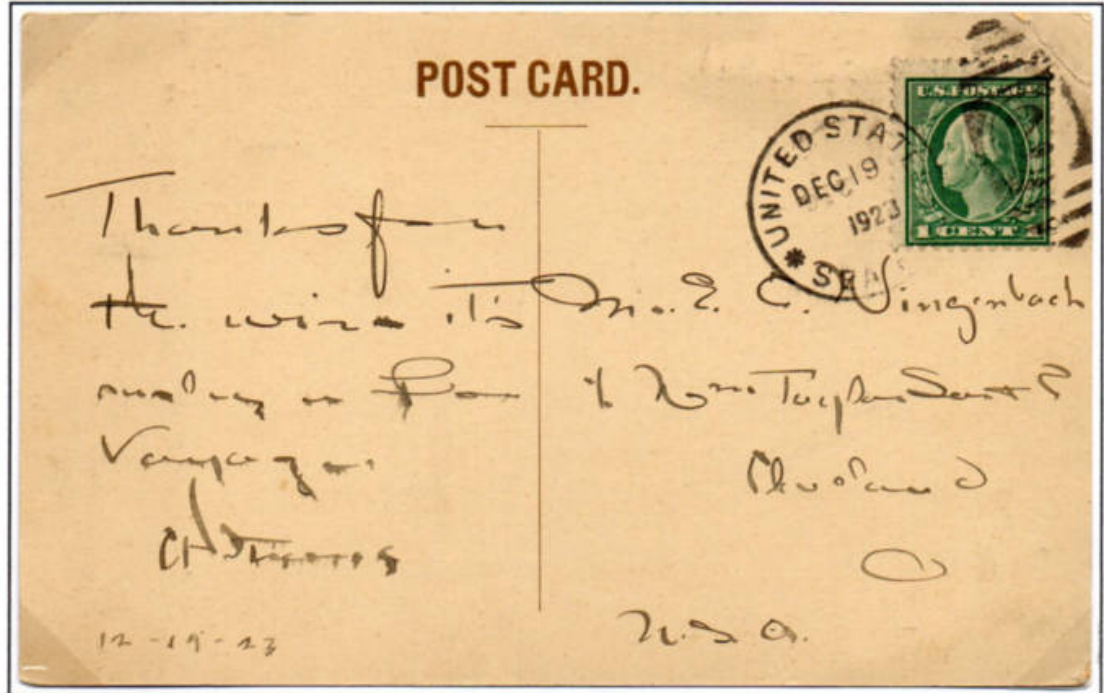 POST CARD.
UNITED STAT
DEC 19
1923
SEA
U.S. POSTAGE
1 CENT 1
Thanks for
the wire it's
making a fine
Voyage.
12-19-23
Mr. E. C. Wingenbach
℅ Wm Taylor Son & Co
Cleveland
O
U.S.A.